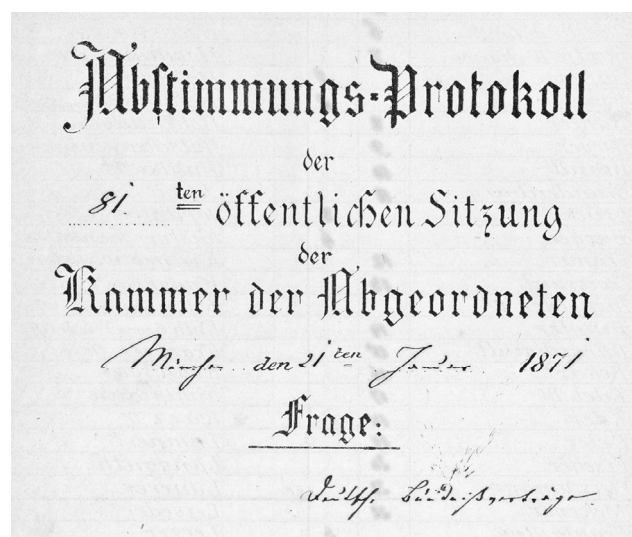 Abstimmungs-Protokoll
der
81 ten öffentlichen Sitzung
der
Kammer der Abgeordneten
München den 21 ten Januar 1871
Frage:
Deutsche Bündnißverträge.